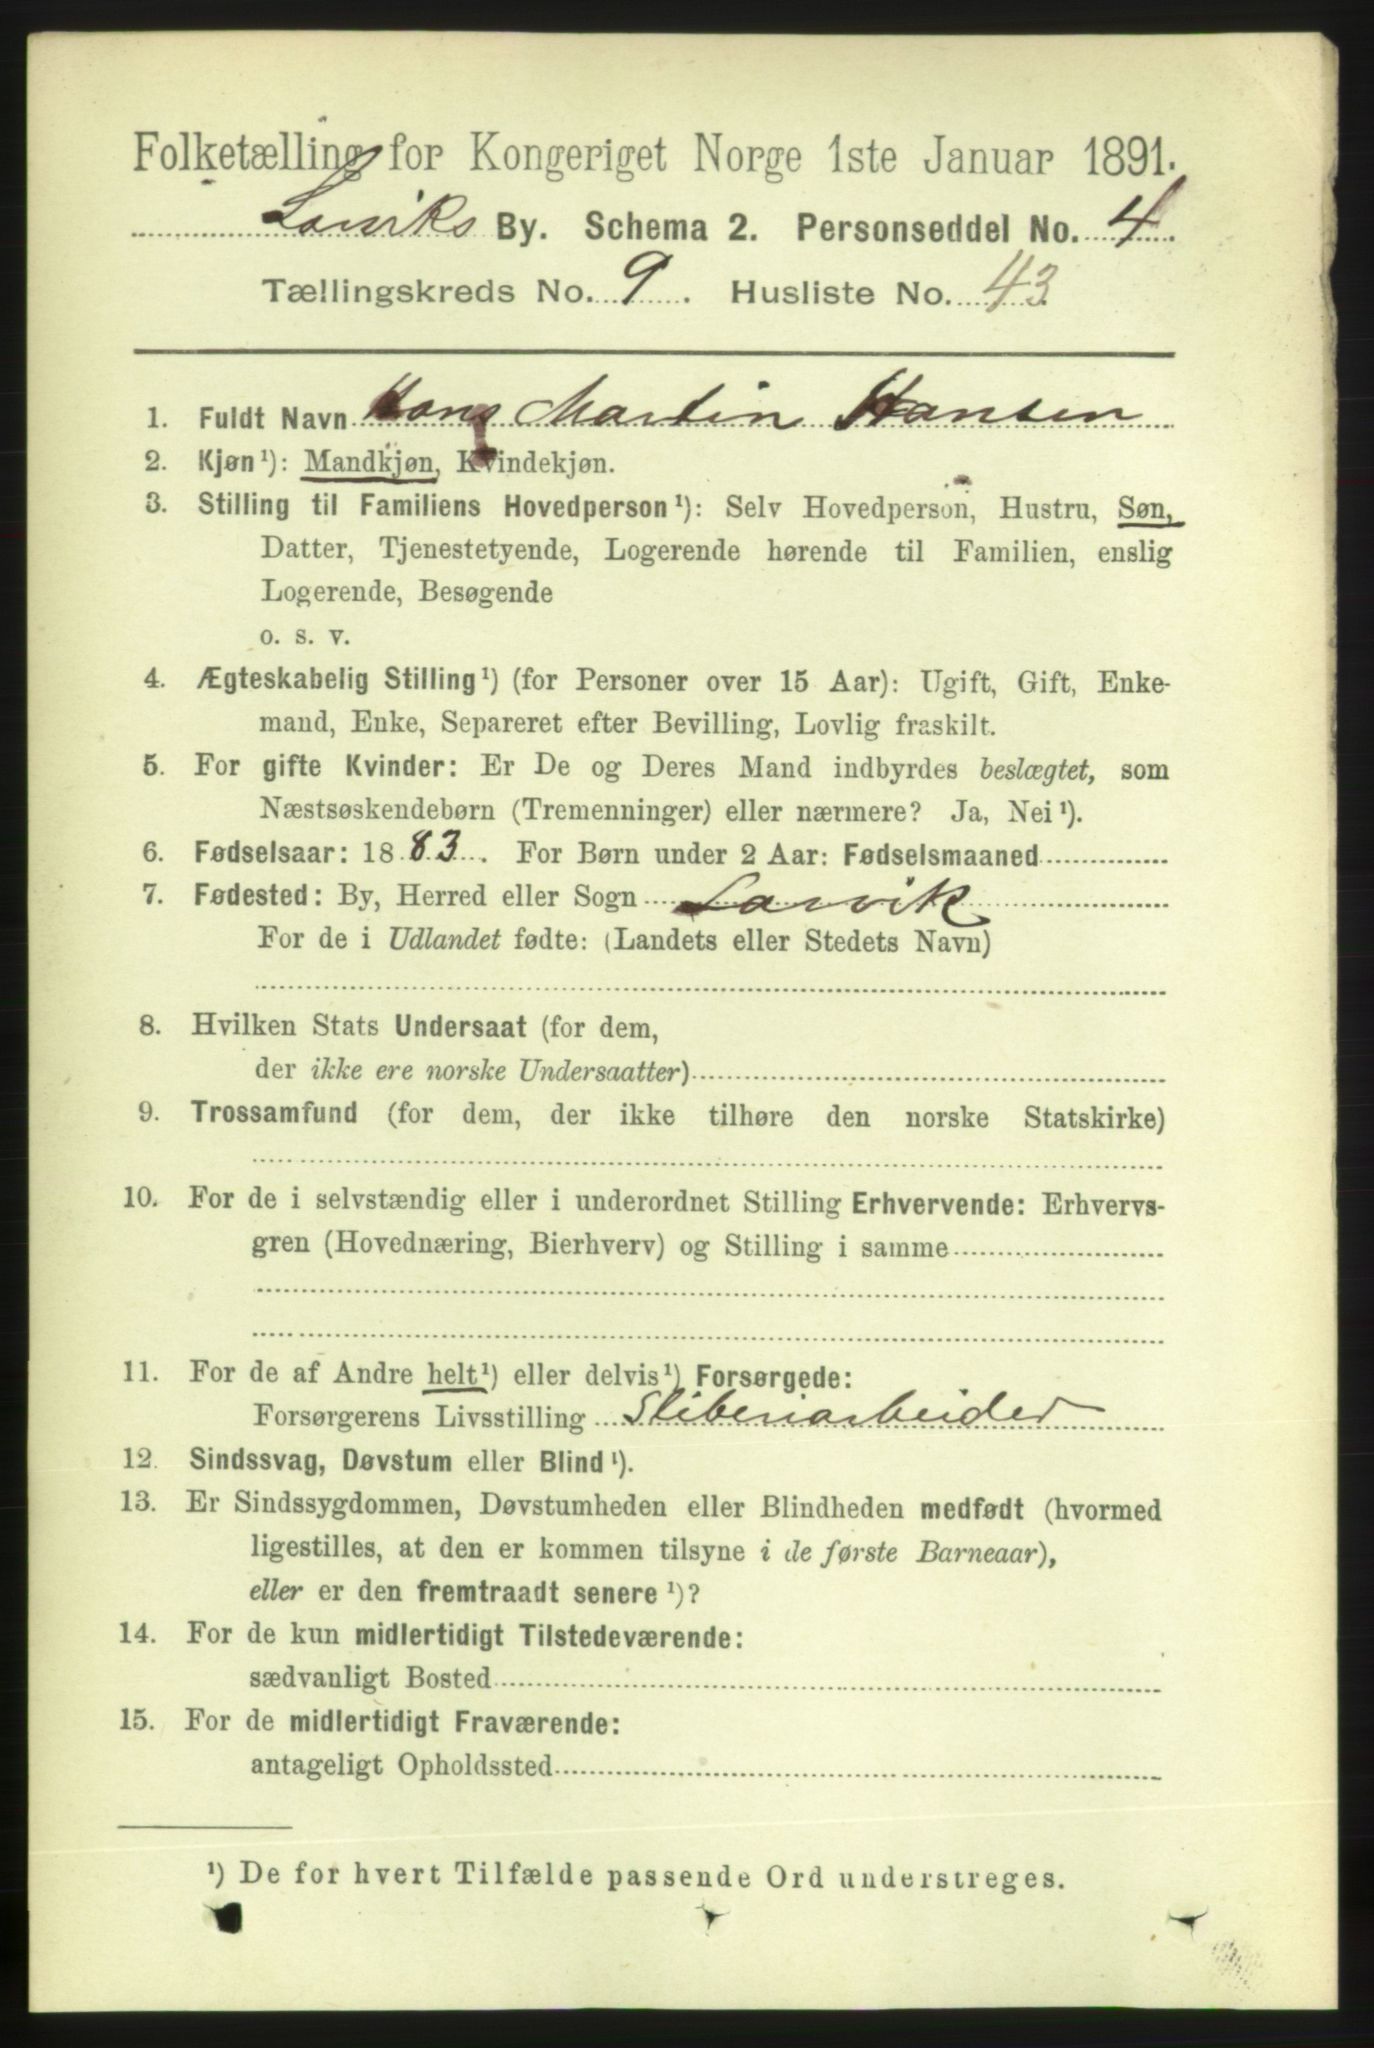 Folketælling for Kongeriget Norge 1ste Januar 1891.
Larviks By. Schema 2. Personseddel No. 4.
Tællingskreds No. 9. Husliste No. 43
1. Fuldt Navn Hans Martin Hansen
2. Kjøn¹): Mandkjøn, Kvindekjøn.
3. Stilling til Familiens Hovedperson¹): Selv Hovedperson, Hustru, Søn,
Datter, Tjenestetyende, Logerende hørende til Familien, enslig
Logerende, Besøgende
o. s. v.
4. Ægteskabelig Stilling¹) (for Personer over 15 Aar): Ugift, Gift, Enke-
mand, Enke, Separeret efter Bevilling, Lovlig fraskilt.
5. For gifte Kvinder: Er De og Deres Mand indbyrdes beslægtet, som
Næstsøskendebørn (Tremenninger) eller nærmere? Ja, Nei¹).
6. Fødselsaar: 1883. For Børn under 2 Aar: Fødselsmaaned
7. Fødested: By, Herred eller Sogn Larvik
For de i Udlandet fødte: (Landets eller Stedets Navn)
8. Hvilken Stats Undersaat (for dem,
der ikke ere norske Undersaatter)
9. Trossamfund (for dem, der ikke tilhøre den norske Statskirke)
10. For de i selvstændig eller i underordnet Stilling Erhvervende: Erhvervs-
gren (Hovednæring, Bierhverv) og Stilling i samme
11. For de af Andre helt¹) eller delvis¹) Forsørgede:
Forsørgerens Livsstilling Sliberiarbeider
12. Sindssvag, Døvstum eller Blind¹).
13. Er Sindssygdommen, Døvstumheden eller Blindheden medfødt (hvormed
ligestilles, at den er kommen tilsyne i de første Barneaar),
eller er den fremtraadt senere¹)?
14. For de kun midlertidigt Tilstedeværende:
sædvanligt Bosted
15. For de midlertidigt Fraværende:
antageligt Opholdssted
¹) De for hvert Tilfælde passende Ord understreges.